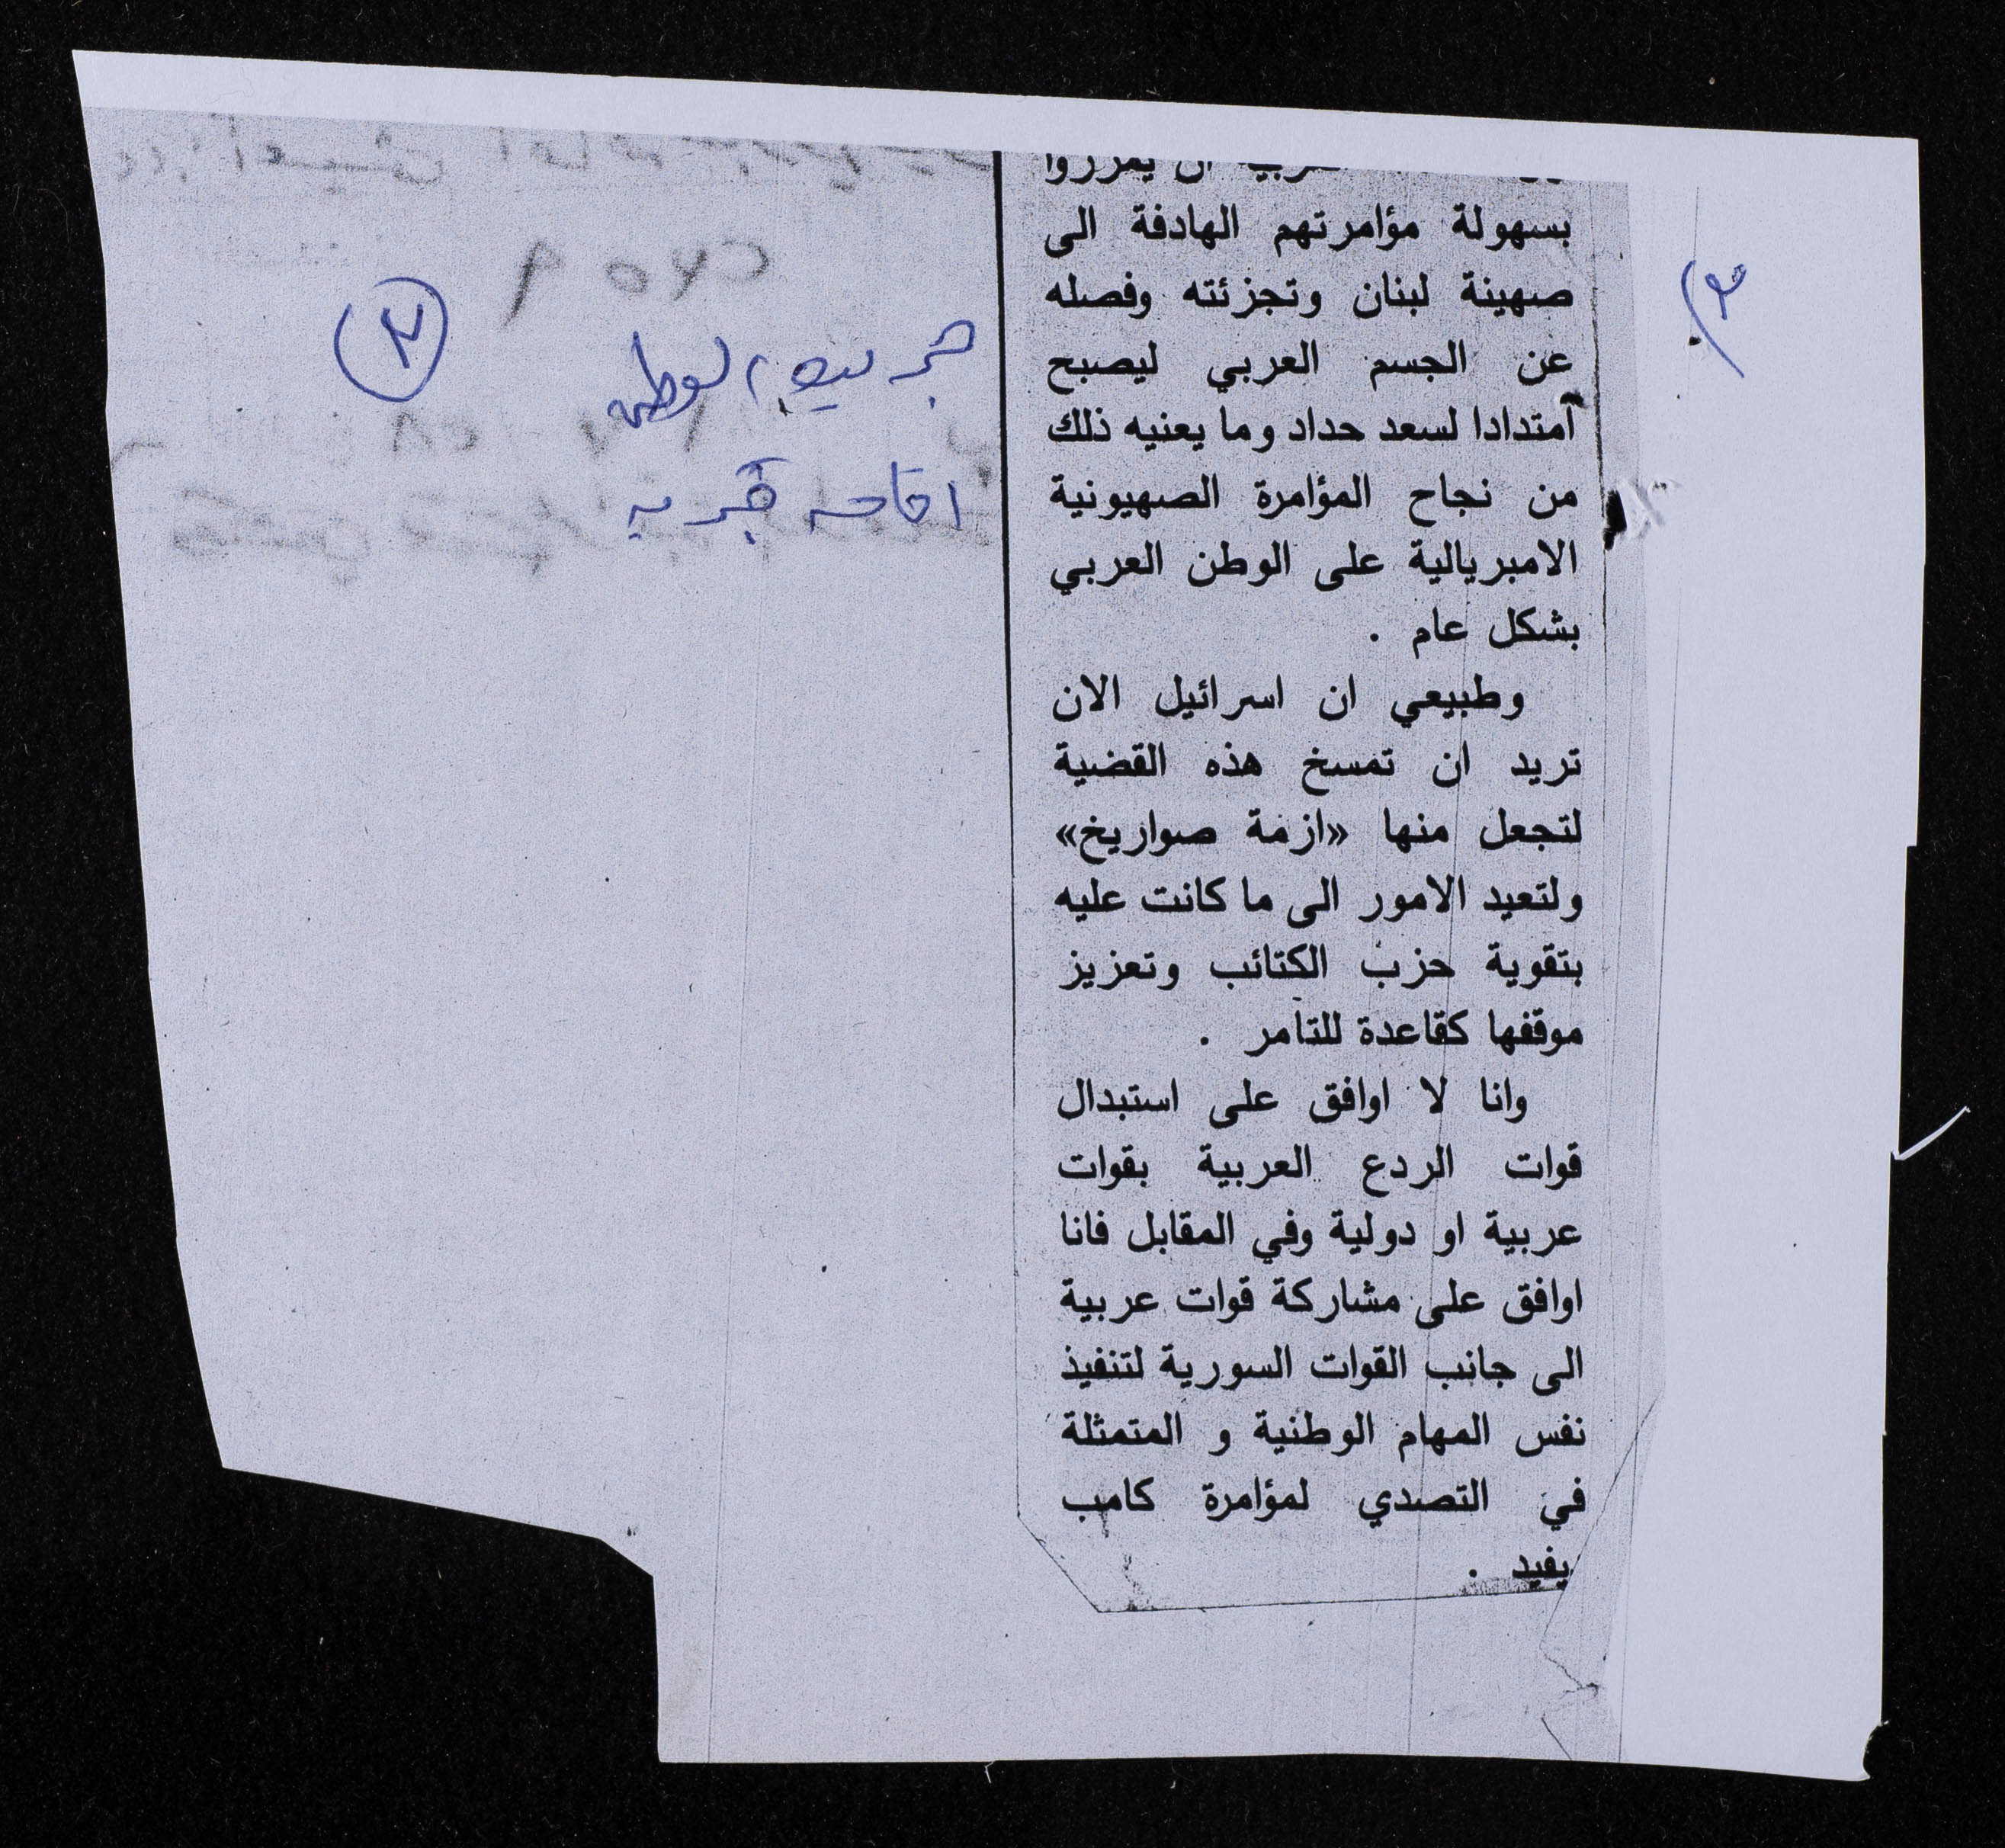 ان يمرروا
بسهولة مؤامرتهم الهادفة الى
صهينة لبنان وتجزئته وفصله
عن الجسم العربي ليصبح
امتدادا لسعد حداد وما يعنيه ذلك
من نجاح المؤامرة الصهيونية
الامبريالية على الوطن العربي
بشكل عام .
وطبيعي ان اسرائيل الان
تريد ان تمسخ هذه القضية
لتجعل منها «ازمة صواريخ»
ولتعيد الامور الى ما كانت عليه
بتقوية حزب الكتائب وتعزيز
موقفها كقاعدة للتآمر .
وانا لا اوافق على استبدال
قوات الردع العربية بقوات
عربية او دولية وفي المقابل فانا
اوافق على مشاركة قوات عربية
الى جانب القوات السورية لتنفيذ
نفس المهام الوطنية و المتمثلة
في التصدي لمؤامرة كامب
يفيد .
جريدة الوطن